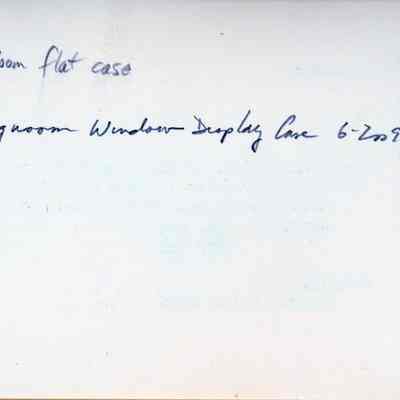 oom flat case
Window Display Case 6-2009